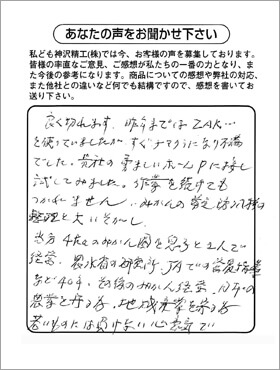 あなたの声をお聞かせ下さい
私ども神沢精工(株)では今、お客様の声を募集しております。
皆様の率直なご意見、ご感想が私たちの一番の力となり、ま
た今後の参考になります。商品についての感想や弊社の対応、
また他社との違いなど何でも結構ですので、感想を書いてお
送り下さい。
良く切れます。昨年まではZAK…
を使っていましたがすぐナマクラになり不満
でした。貴社の ホームPに接し
試してみました。作業を続けても
つかれません。みかんの
整理と大いそがし。
当方4代のみかん園を息子と二人で
経営。
など40年、その後のみかん経営、日本の
農業を守る為、地域産業を守る為
若いものには負けない心 で